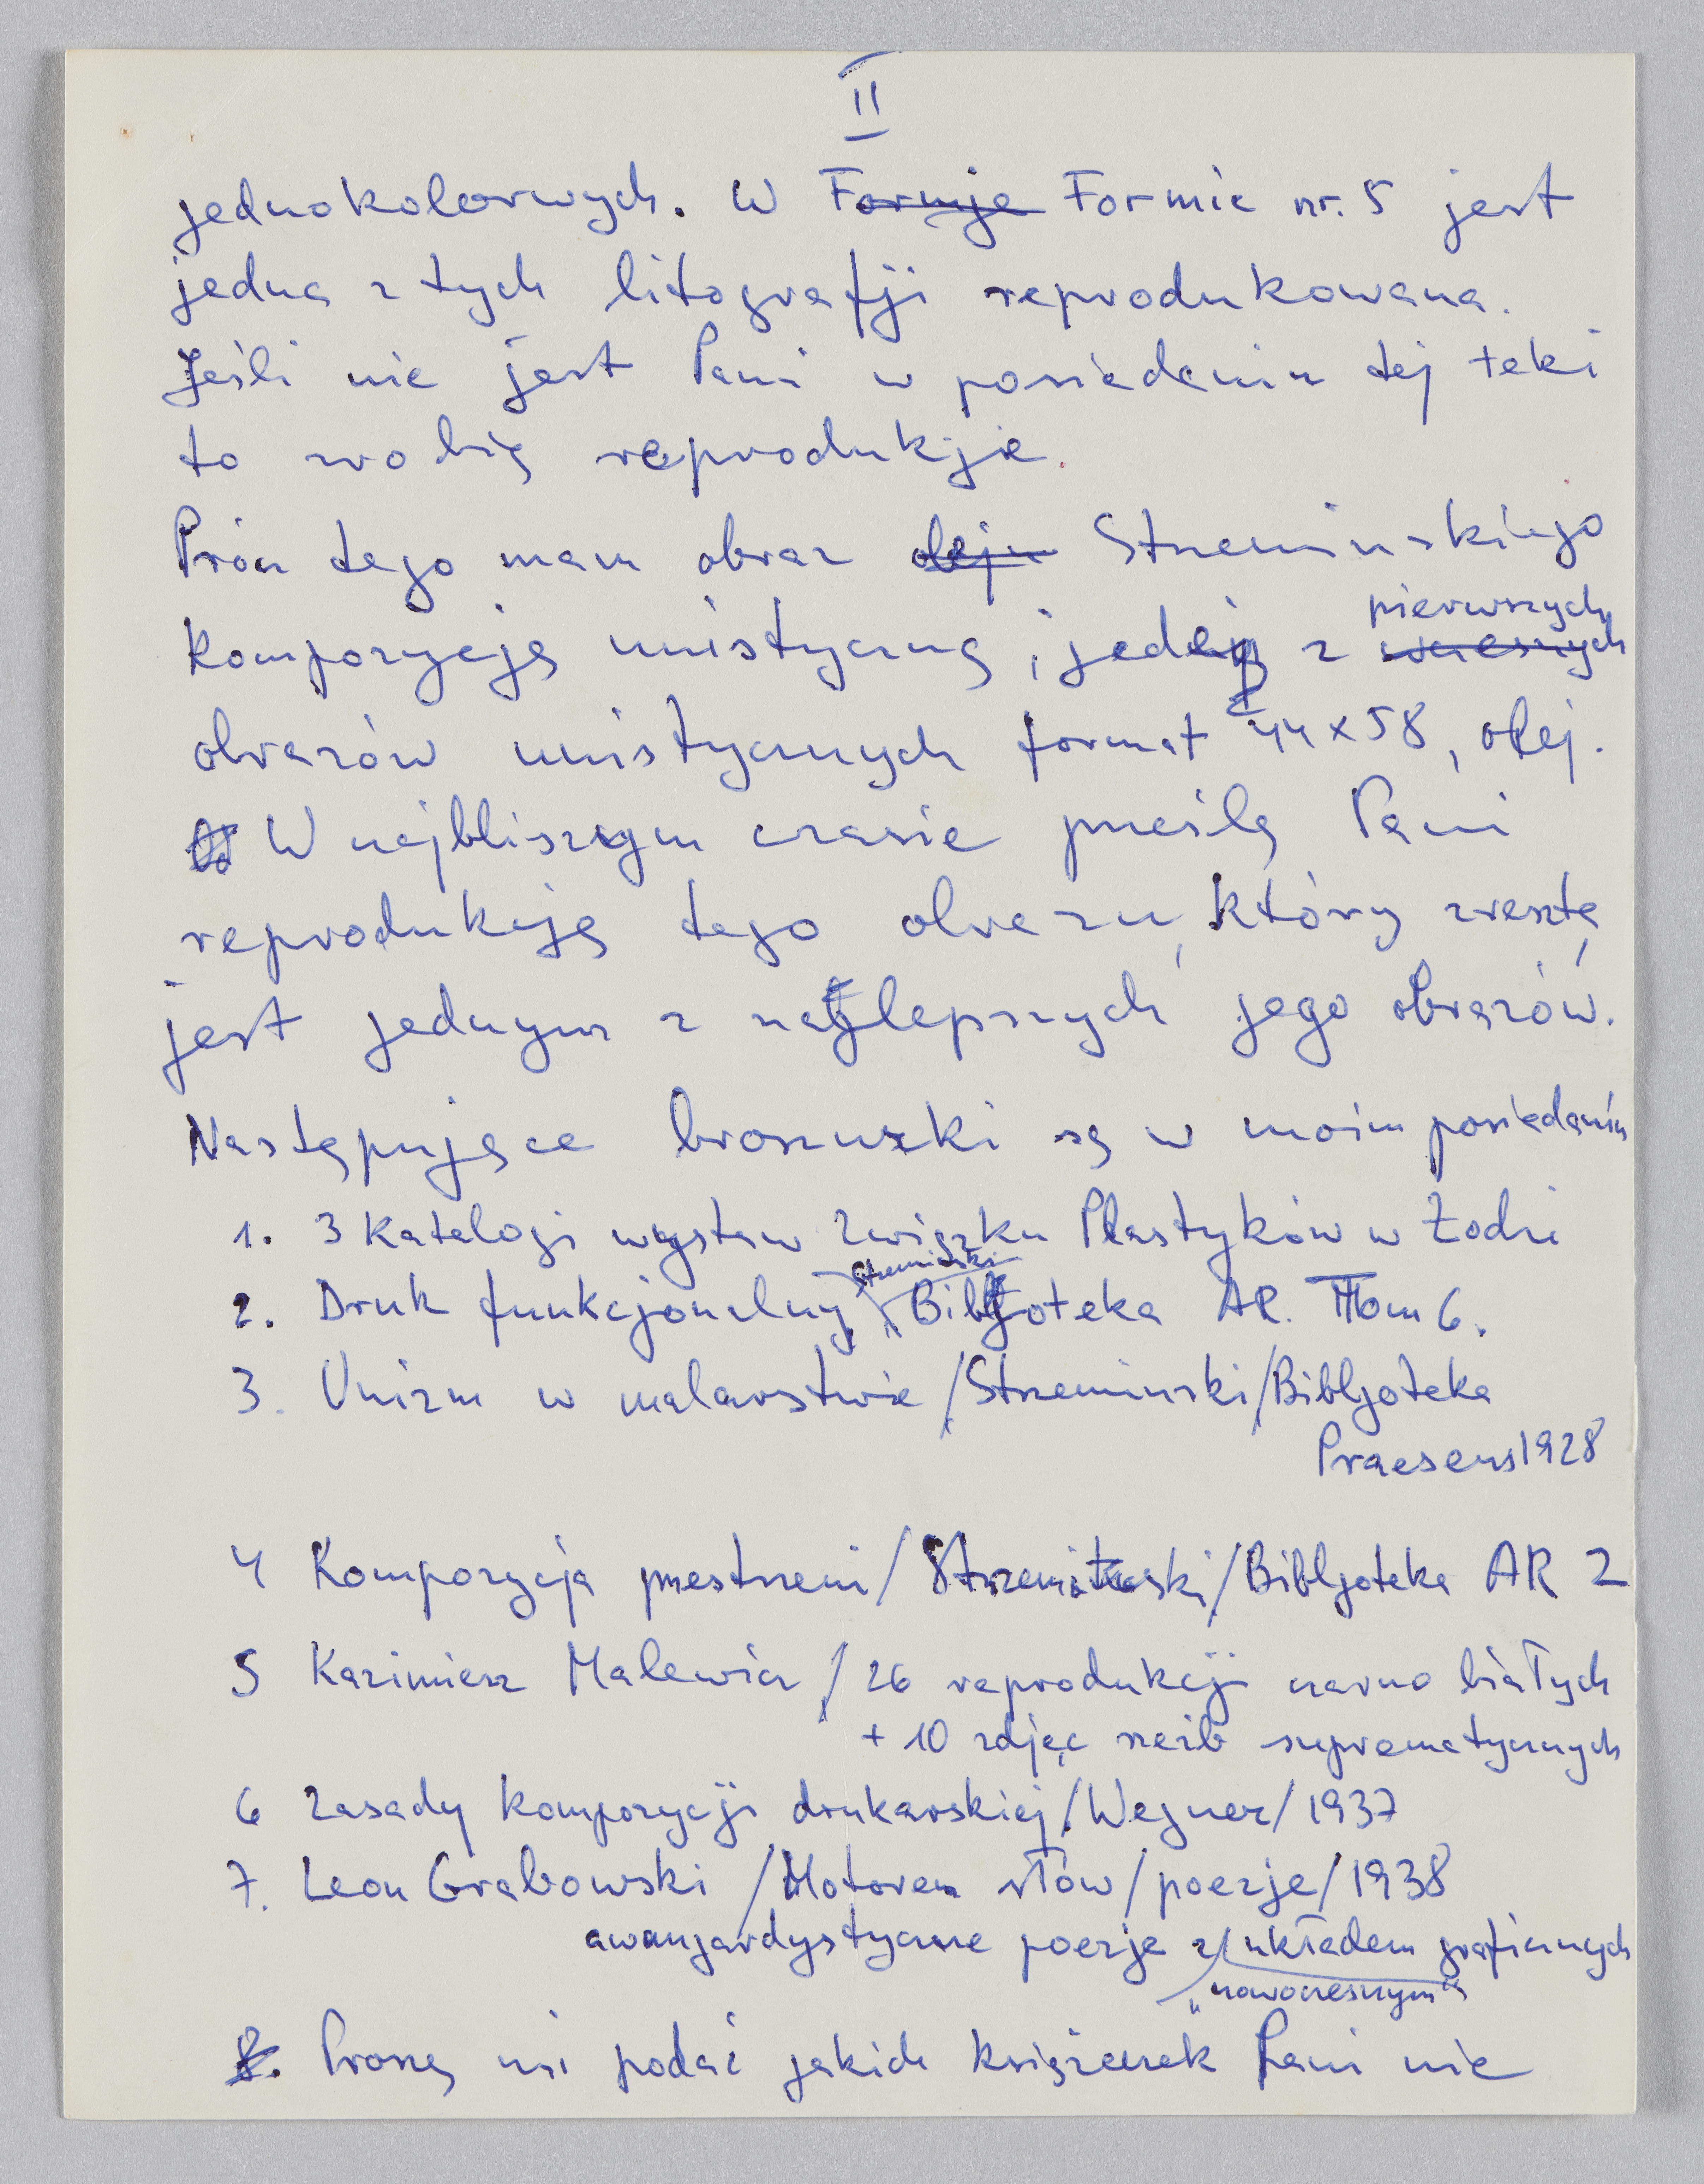 II
jednokolorwych. W Formje Formie nr. 5 jest
jedna z tych litografji reprodukowana.
Jeśli nie jest Pani w posiedaniu tej teki
to zrobię reprodukcje.
Prócz tego mam obraz oleju Strzemińskiego
Kompozycję unistyczną, jedej z wczesnych pierwszych
obrazów unistycznych format 44 x 58, olej.
W najbliszym czasie prześlę Pani
reprodukcję tego obrazu, który zresztą
jest jednym z najlepszych jego obrazów.
Następujące broszurki są w moim posiedaniu
1. 3 Katalogi wystaw Związku Plastyków w Łodzi
2. Druk funkcjonalny, Strzemiński "Bibljoteka AR. Tom 6.
3. Unizm w malarstwie /Strzeminski/Bibljoteka
Praesens 1928
4 Kompozycja przestrzeni/ Strzemiński/Bibljoteka AR 2
5 Kazimierz Malewicz / 26 reprodukcji czarno białych
+ 10 zdjęć rzeźb suprematycznych
6 Zasady kompozycji drukarskiej /Wegner/ 1937
7. Leon Grabowski /Motorem słów/poezje/ 1938
awangardystyczne poezje z układem graficznych
"nowoczesnym"
8. Proszę mi podać jakich książeczek Pani nie